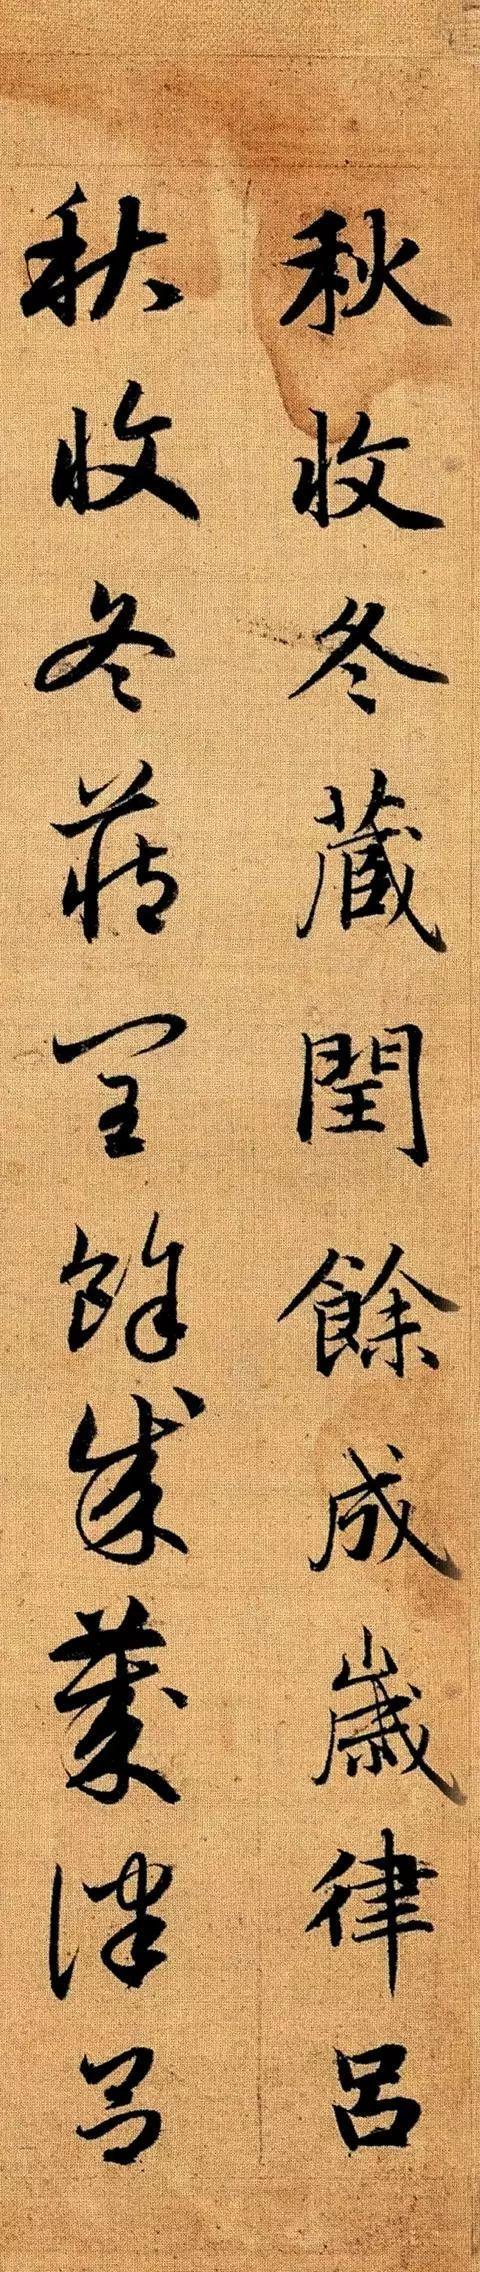 秋收冬蔵閏餘成歳律呂
秋收冬蔵閏餘成歳律呂